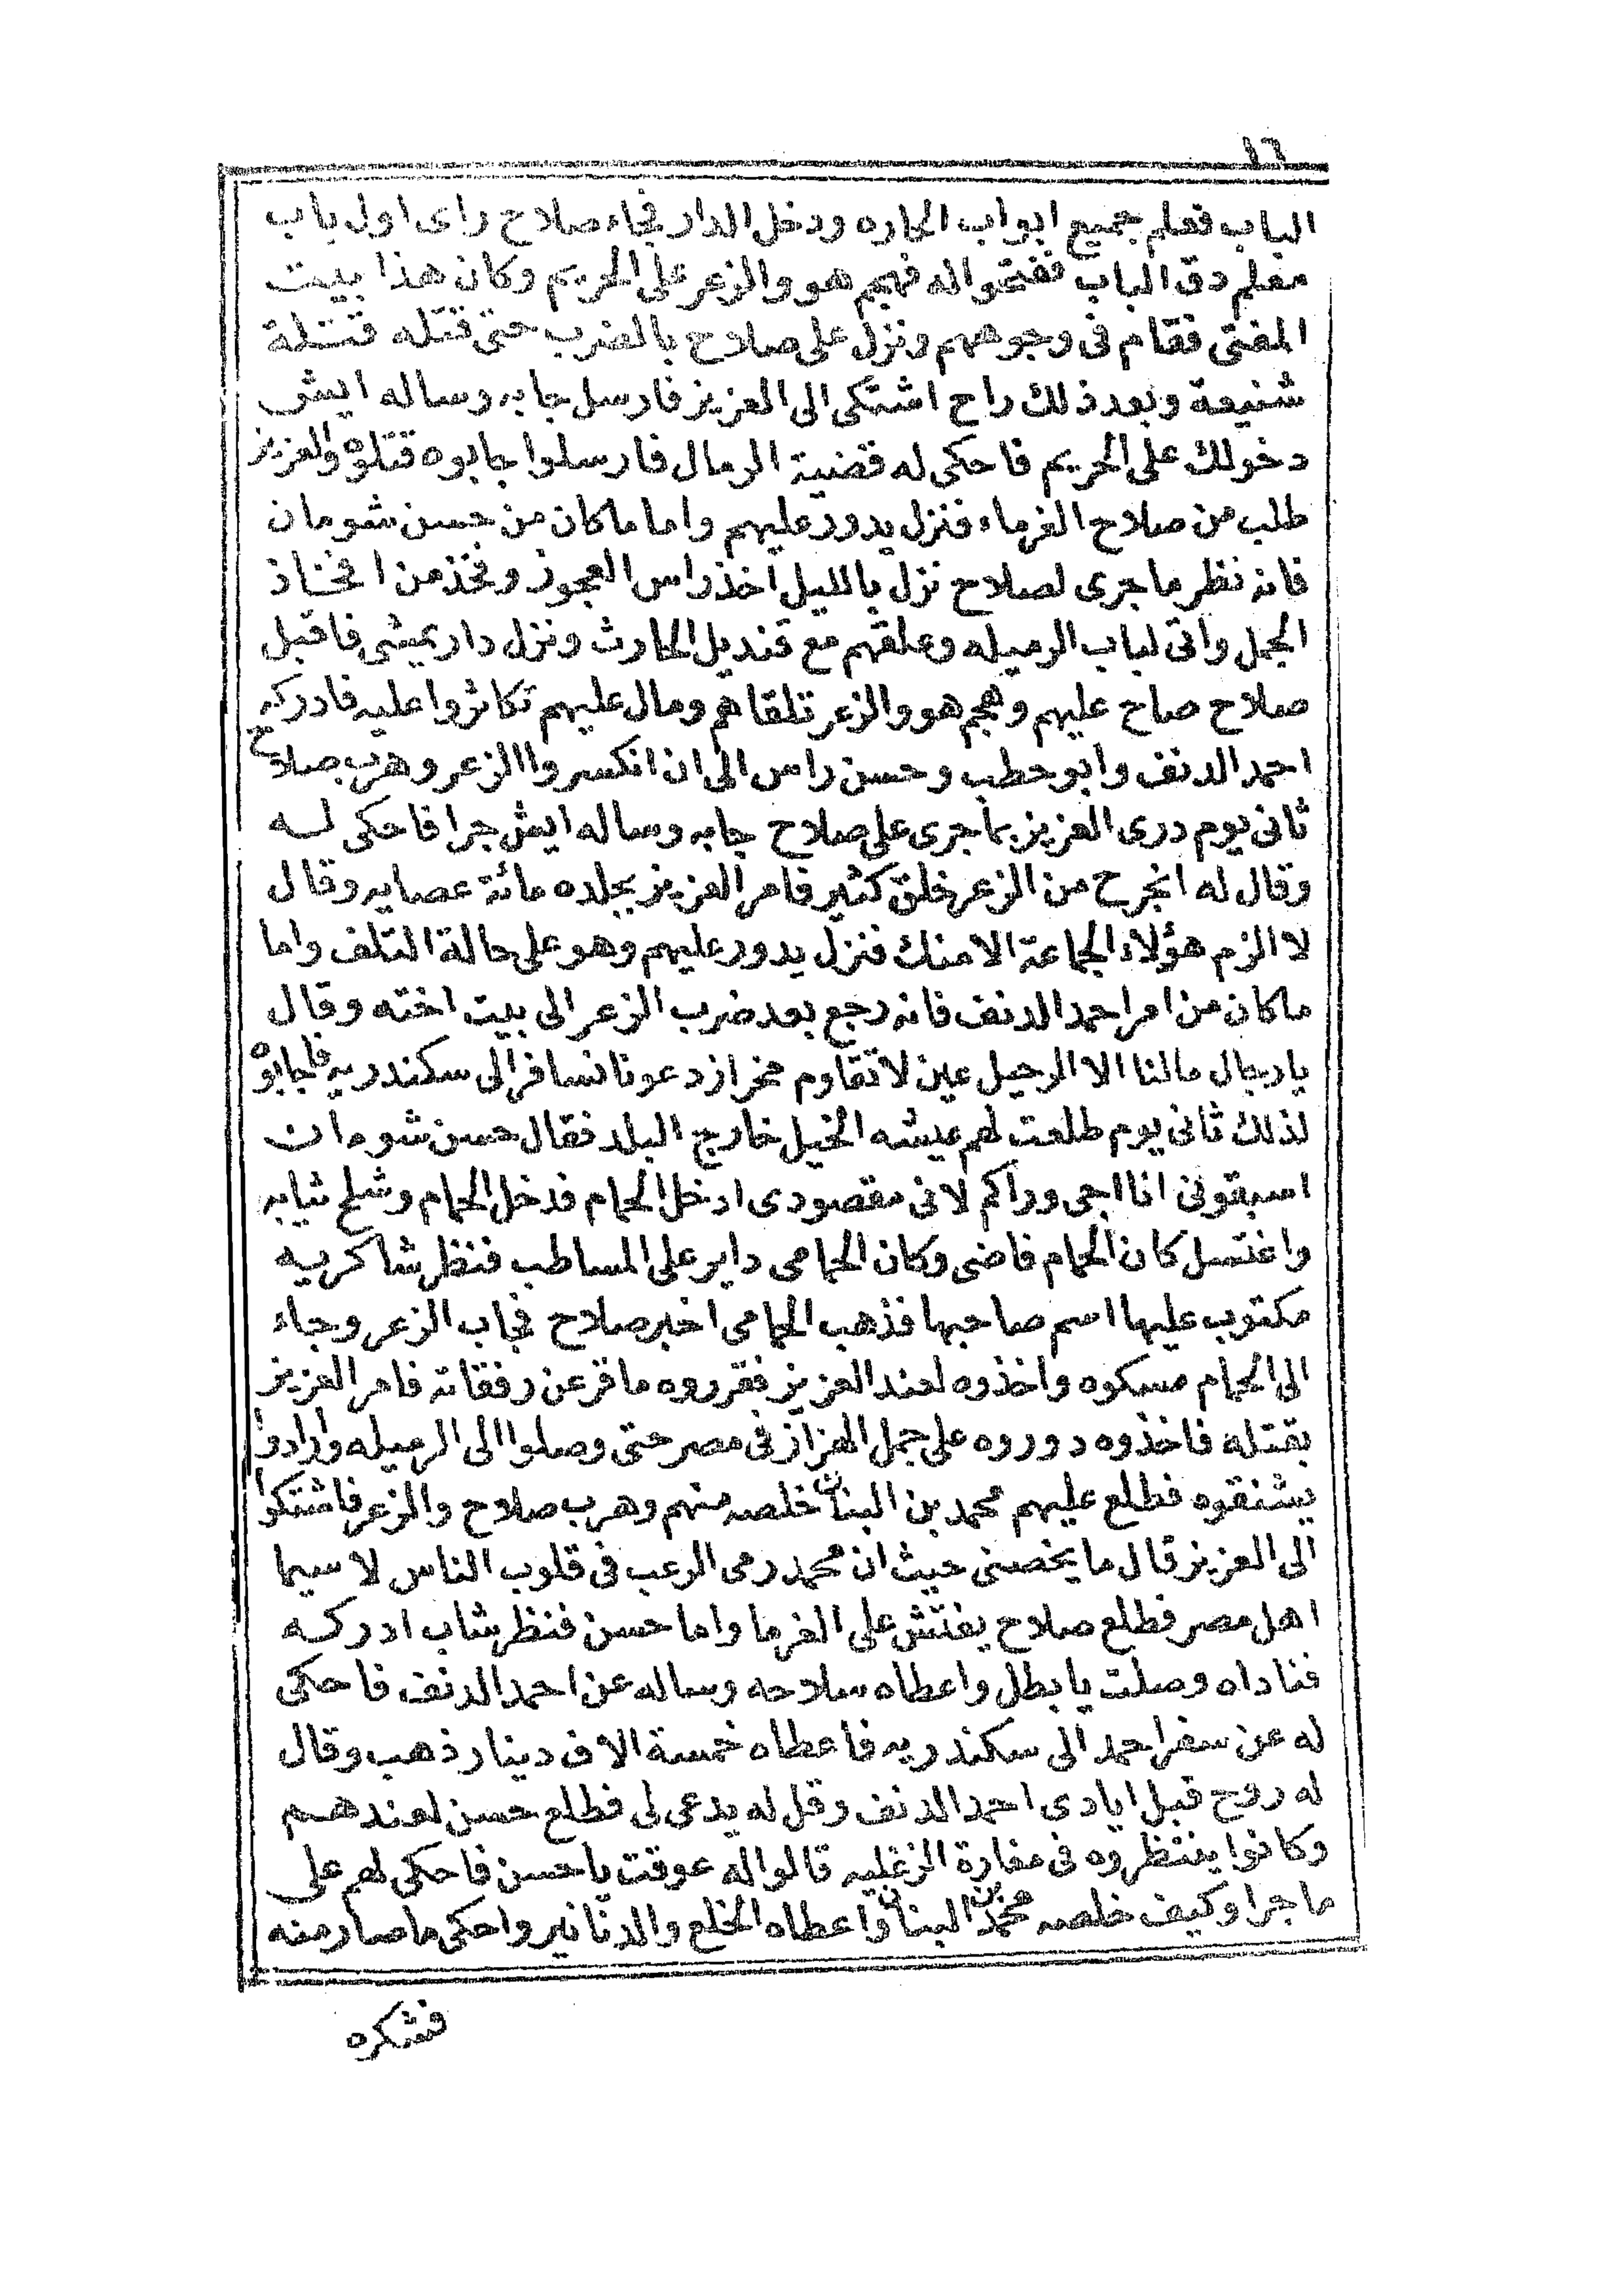 ١٦
الباب فعلم جميع ابواب الحاره ودخل الدار فجاء صلاح راى اول باب
معلم دق الباب ففتحوا له فهجم هو والزعر على الحريم وكان هذا بيت
المفتى فقام فى وجوههم ونزل على صلاح بالضرب حتى قتله قتلة
شنيعة وبعد ذلك راح اشتكى الى العزيز فارسل جابه وساله ايش
دخولك على الحريم فاحكى له قضية الرمال فارسلوا جابوه قتلوه والعزيز
طلب من صلاح الغرماء فنزل يدور عليهم واما ماكان من حسن شومان
فانه نظر ماجرى لصلاح نزل بالليل اخذ راس العجوز وفخذ من افخاذ
الجمل واتى لباب الرميله وعلقهم مع قنديل الحارث ونزل دار يمشى فاقبل
صلاح صاح عليهم وهجم هو والزعر تلقاهم ومال عليهم تكاثروا عليه فادركه
احمد الدنف وابو حطب وحسن راس الى ان انكسروا الزعر وهرب صلاح
ثانى يوم درى العزيز بماجرى على صلاح جابه وساله ايش جرا فاحكى له
وقال له انجرح من الزعر خلق كثير فامر العزيز بجلده مائة عصايه وقال
لا الزم هؤلاء الجماعة الا منك فنزل يدور عليهم وهو على حالة التلف واما
ماكان من امر احمد الدنف فانه رجع بعد ضرب الزعر الى بيت اخته وقال
يارجال مالنا الا الرحيل عين لاتقاوم مخراز دعونا نسافر الى سكندريه فاجابوه
لذلك ثانى يوم طلعت لهم عيشه الخيل خارج البلد فقال حسن شومان
اسبقونى انا اجى وراكم لانى مقصودى ادخل الحمام فدخل الحمام وشلح ثيابه
واغتسل كان الحمام فاضى وكان الحمامى داير على المساطب فنظر شاكريه
مكتوب عليها اسم صاحبها فذهب الحمامى اخبر صلاح فجاب الزعر وجاء
الى الحمام مسكوه واخذوه لعند العزيز فقرروه ماقر عن رفقاته فامر العزيز
بقتله فاخذوه دوروه على جمل الهزاز فى مصر حتى وصلوا الى الرميله وارادوا
يشنقوه فطلع عليهم محمد بن البنات خلصه منهم وهرب صلاح والزعر فاشتكوا
الى العزيز قال مايخصنى حيث ان محمد رمى الرعب فى قلوب الناس لاسيما
اهل مصر فطلع صلاح يفتش على الغرما واما حسن فنظر شاب ادركه
فناداه وصلت يابطل واعطاه سلاحه وساله عن احمد الدنف فاحكى
له عن سفر احمد الى سكندريه فاعطاه خمسة الاف دينار ذهب وقال
له روح قبل ايادى احمد الدنف وقل له يدعى لى فطلع حسن لعندهم
وكانوا ينتظروه فى مغارة الزغليه قالوا له عوقت ياحسن فاحكى لهم على
ماجرا وكيف خلصه محمد بن البنات واعطاه الخلع والدنانير واحكى ماصار منه
فشكره